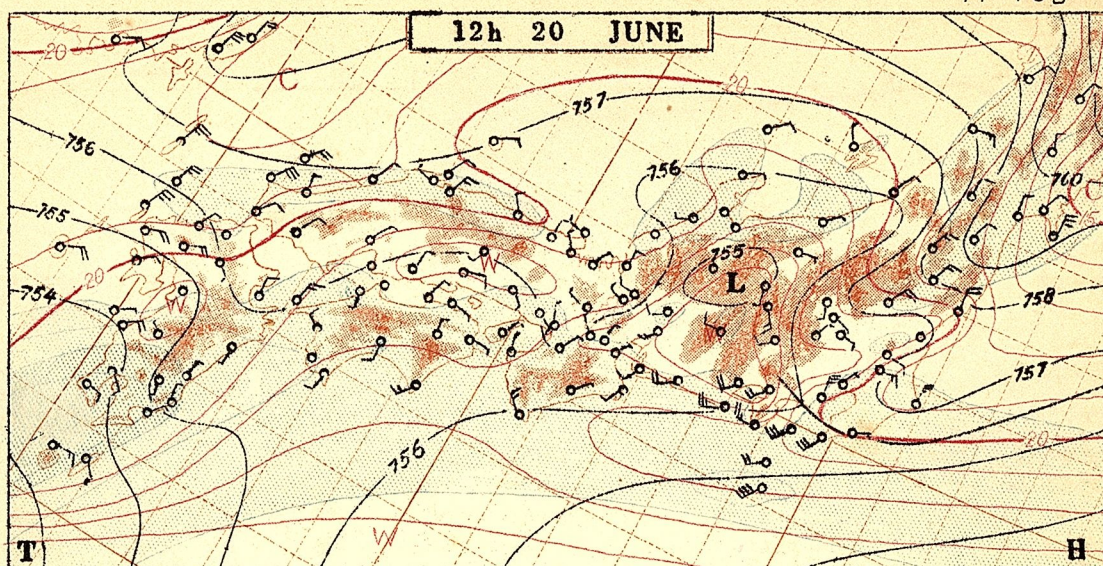 12h 20 JUNE
20
C
757
20
756
756
760
C
15
755
755
W
20
L
754
W
758
W
757
20
756
W
T
H